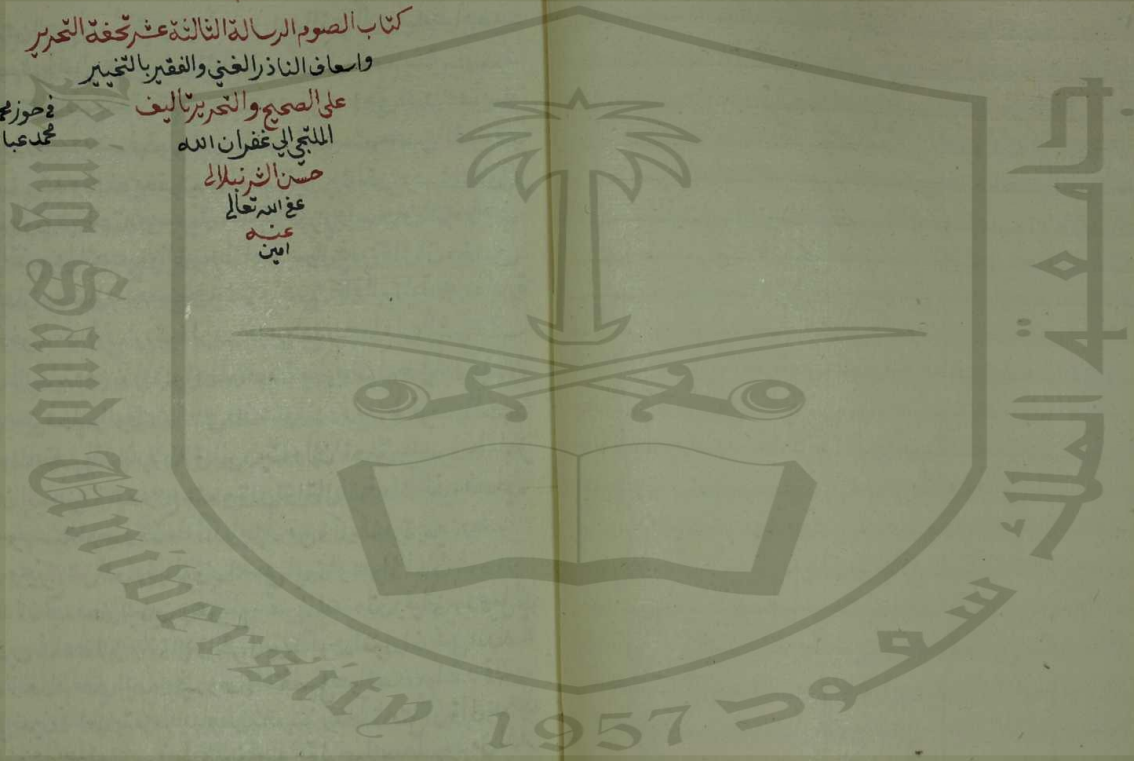 كتاب الصوم الرسالة الثالثة عشر تحفة التحرير
واسعاف الناذر الغني والفقير بالتخيير
على الصحيح والتحرير تاليف
الملتجي الي غفران الله
حسن الشرنبلالي
عفي الله تعالي
عنه
امين
في حوز
محمد عبا
جامعة الملك سعود
King Saud University 1957